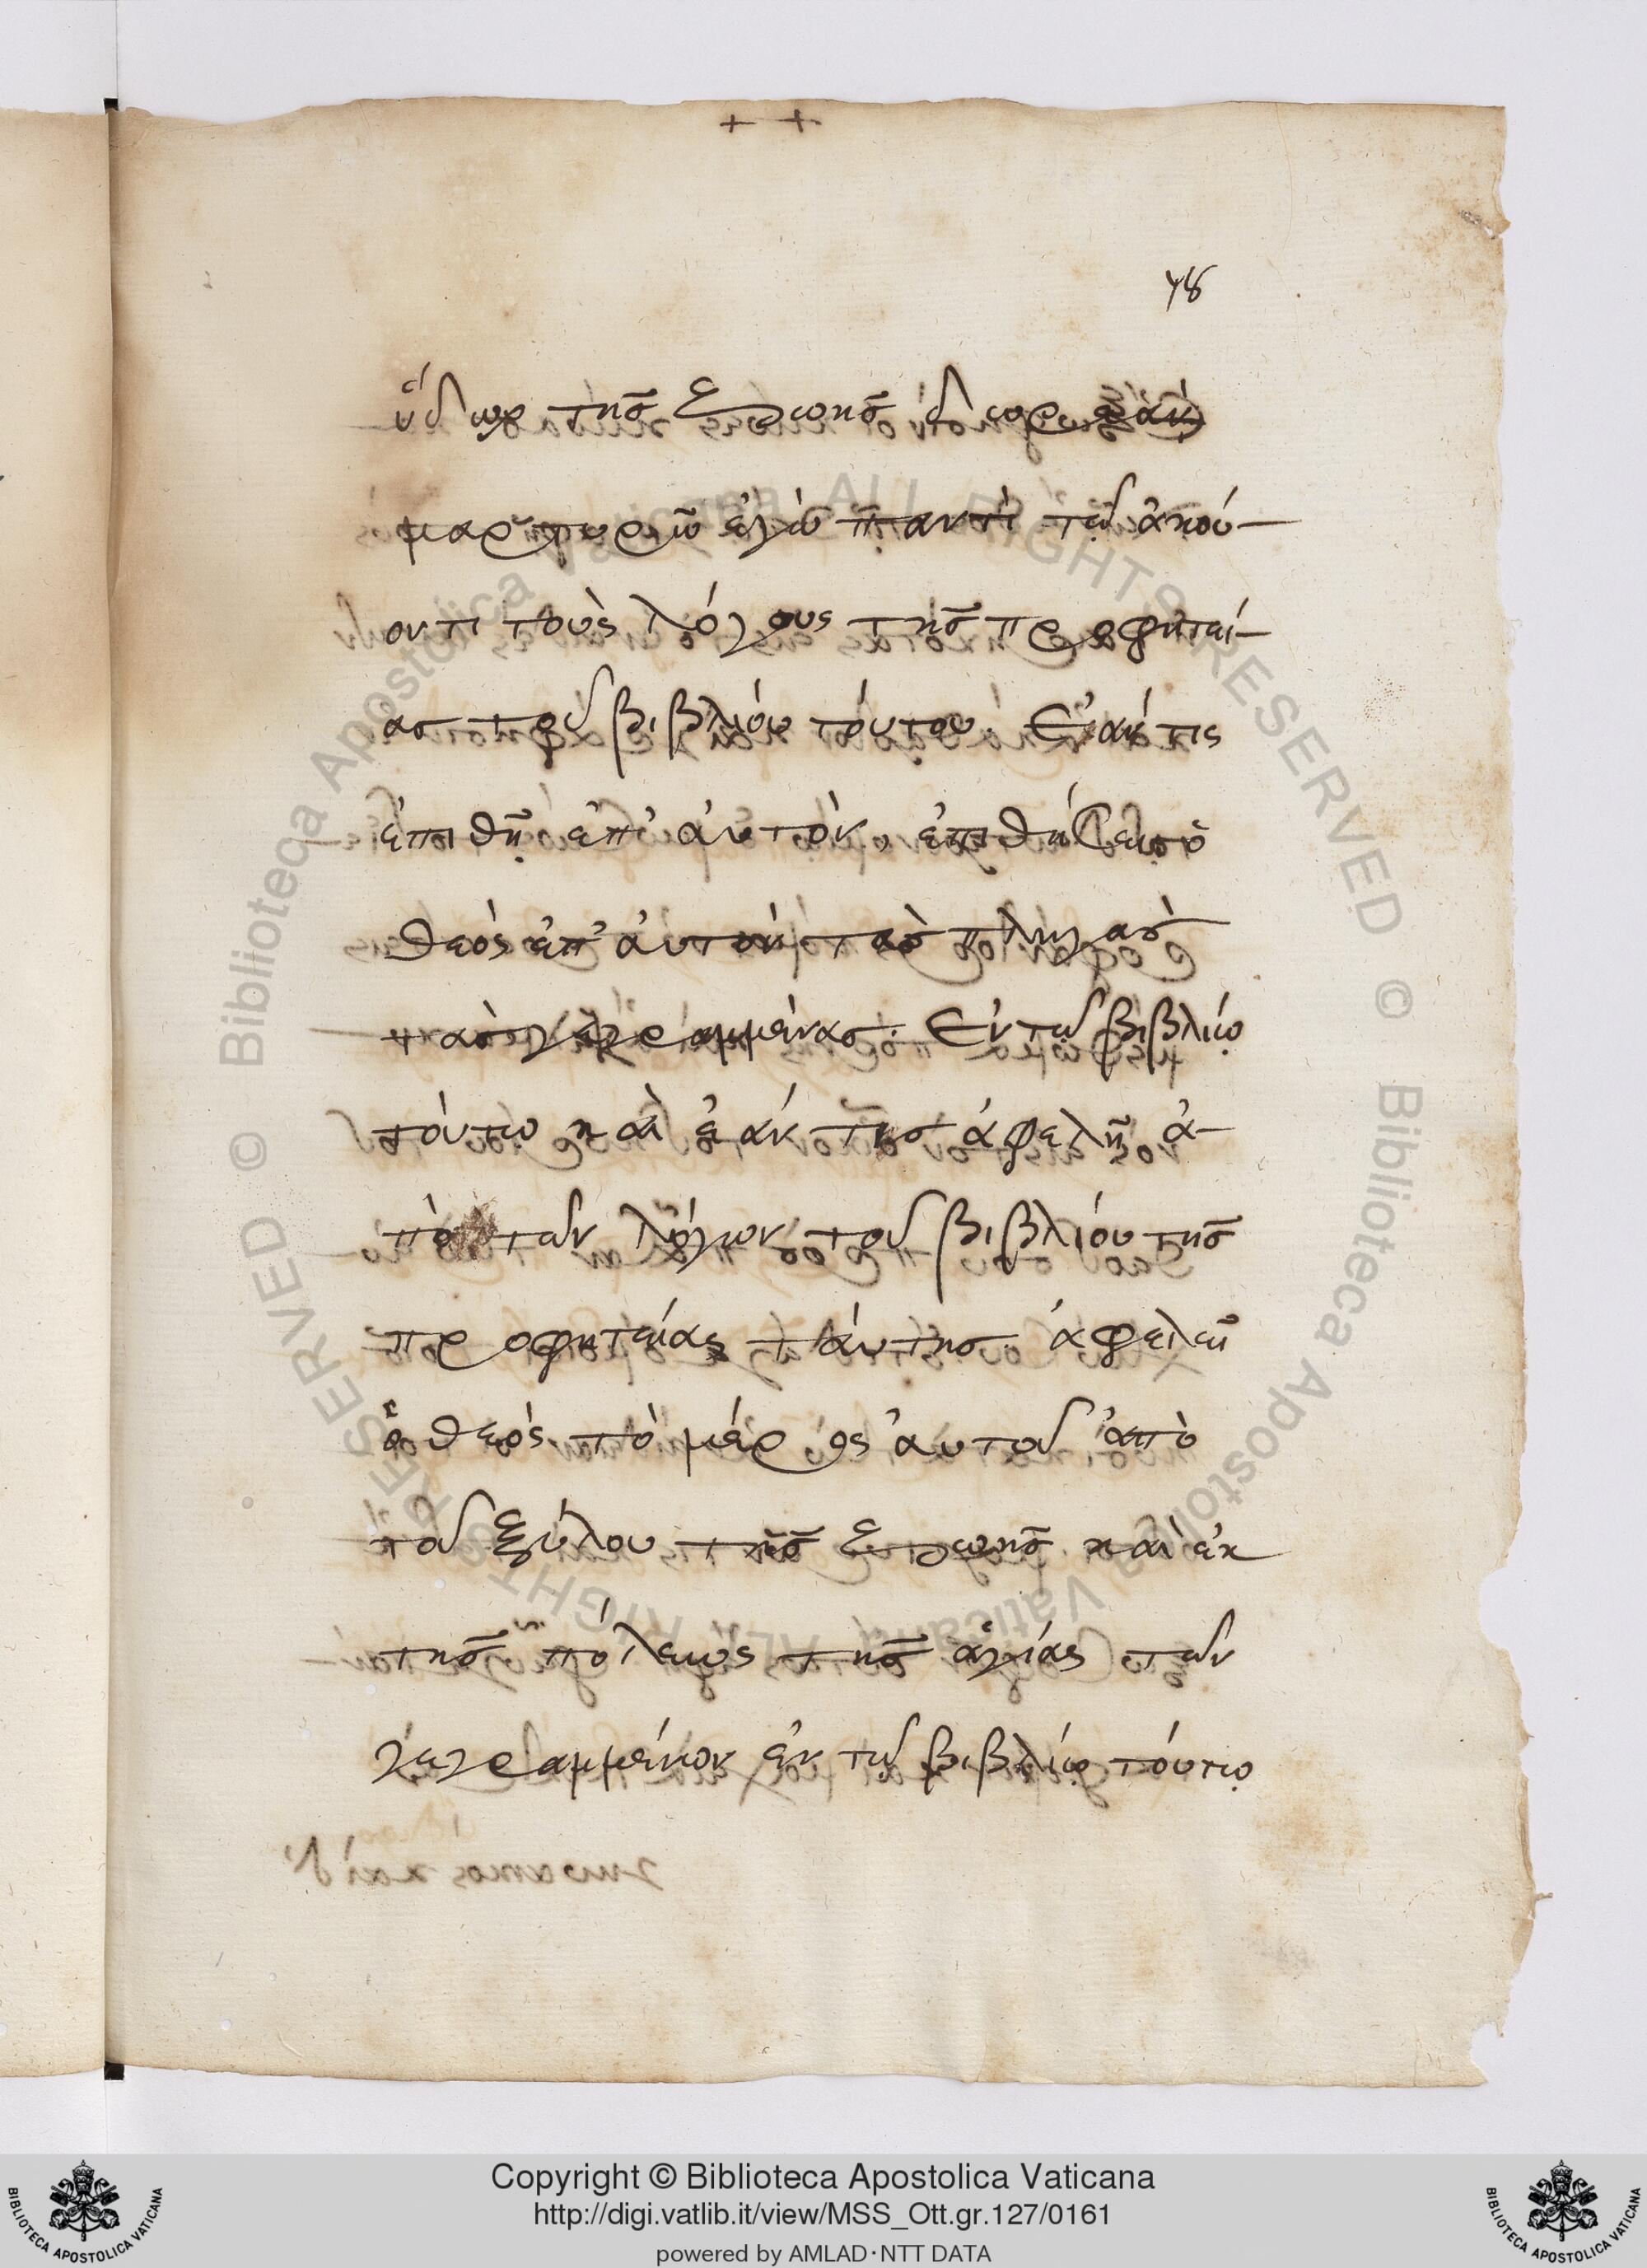 + +
78
ὕδωρ τῆς ζωῆς δωρεάν
μαρτυρῶ ἐγὼ παντὶ τῷ ἀκού-
οντι τοὺς λόγους τῆς προφητεί-
ας τοῦ βιβλίου τούτου. Ἐάν τις
ἐπιθῇ ἐπ' ἀυτὸν, ἐπιθήσει ὁ
θεὸς ἐπ' ἀυτὸν τὰς πληγὰς
τὰς γεγραμμένας. Ἐν τῷ βιβλίῳ
τόυτῳ καὶ ἐάν τις ἀφελῇ ἀ-
πὸ τῶν λόγων τοῦ βιβλίου τῆς
προφητείας τάυτης. ἀφελεῖ
ὁ θεὸς τὸ μέρος ἀυτοῦ ἀπὸ
τοῦ ξύλου τῆς ζωῆς καὶ ἐκ
τῆς πόλεως τῆς ἁγίας τῶν
γεγραμμένων ἐν τῷ βιβλίῳ τόυτῳ
Copyright © Biblioteca Apostolica Vaticana
http://digi.vatlib.it/view/MSS_Ott.gr.127/0161
powered by AMLAD·NTT DATA
BIBLIOTECA APOSTOLICA VATICANA
BIBLIOTECA APOSTOLICA VATICANA
© Biblioteca Apostolica Vaticana ALL RIGHTS RESERVED © Biblioteca Apostolica Vaticana ALL RIGHTS RESERVED